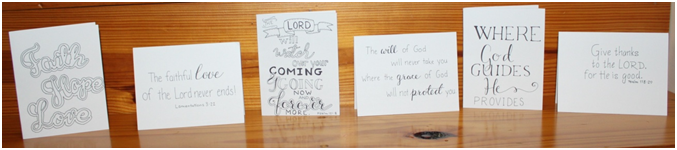 Faith
Hope
Love
The faithful love
of the Lord never ends!
Lamentations 3:22
The LORD
will
watch
over your
COMING
GOING
NOW
forever
MORE
The will of God
will never take you
where the grace of God
will not protect you
WHERE
God
GUIDES
He
PROVIDES
Give thanks
to the LORD,
for He is good.